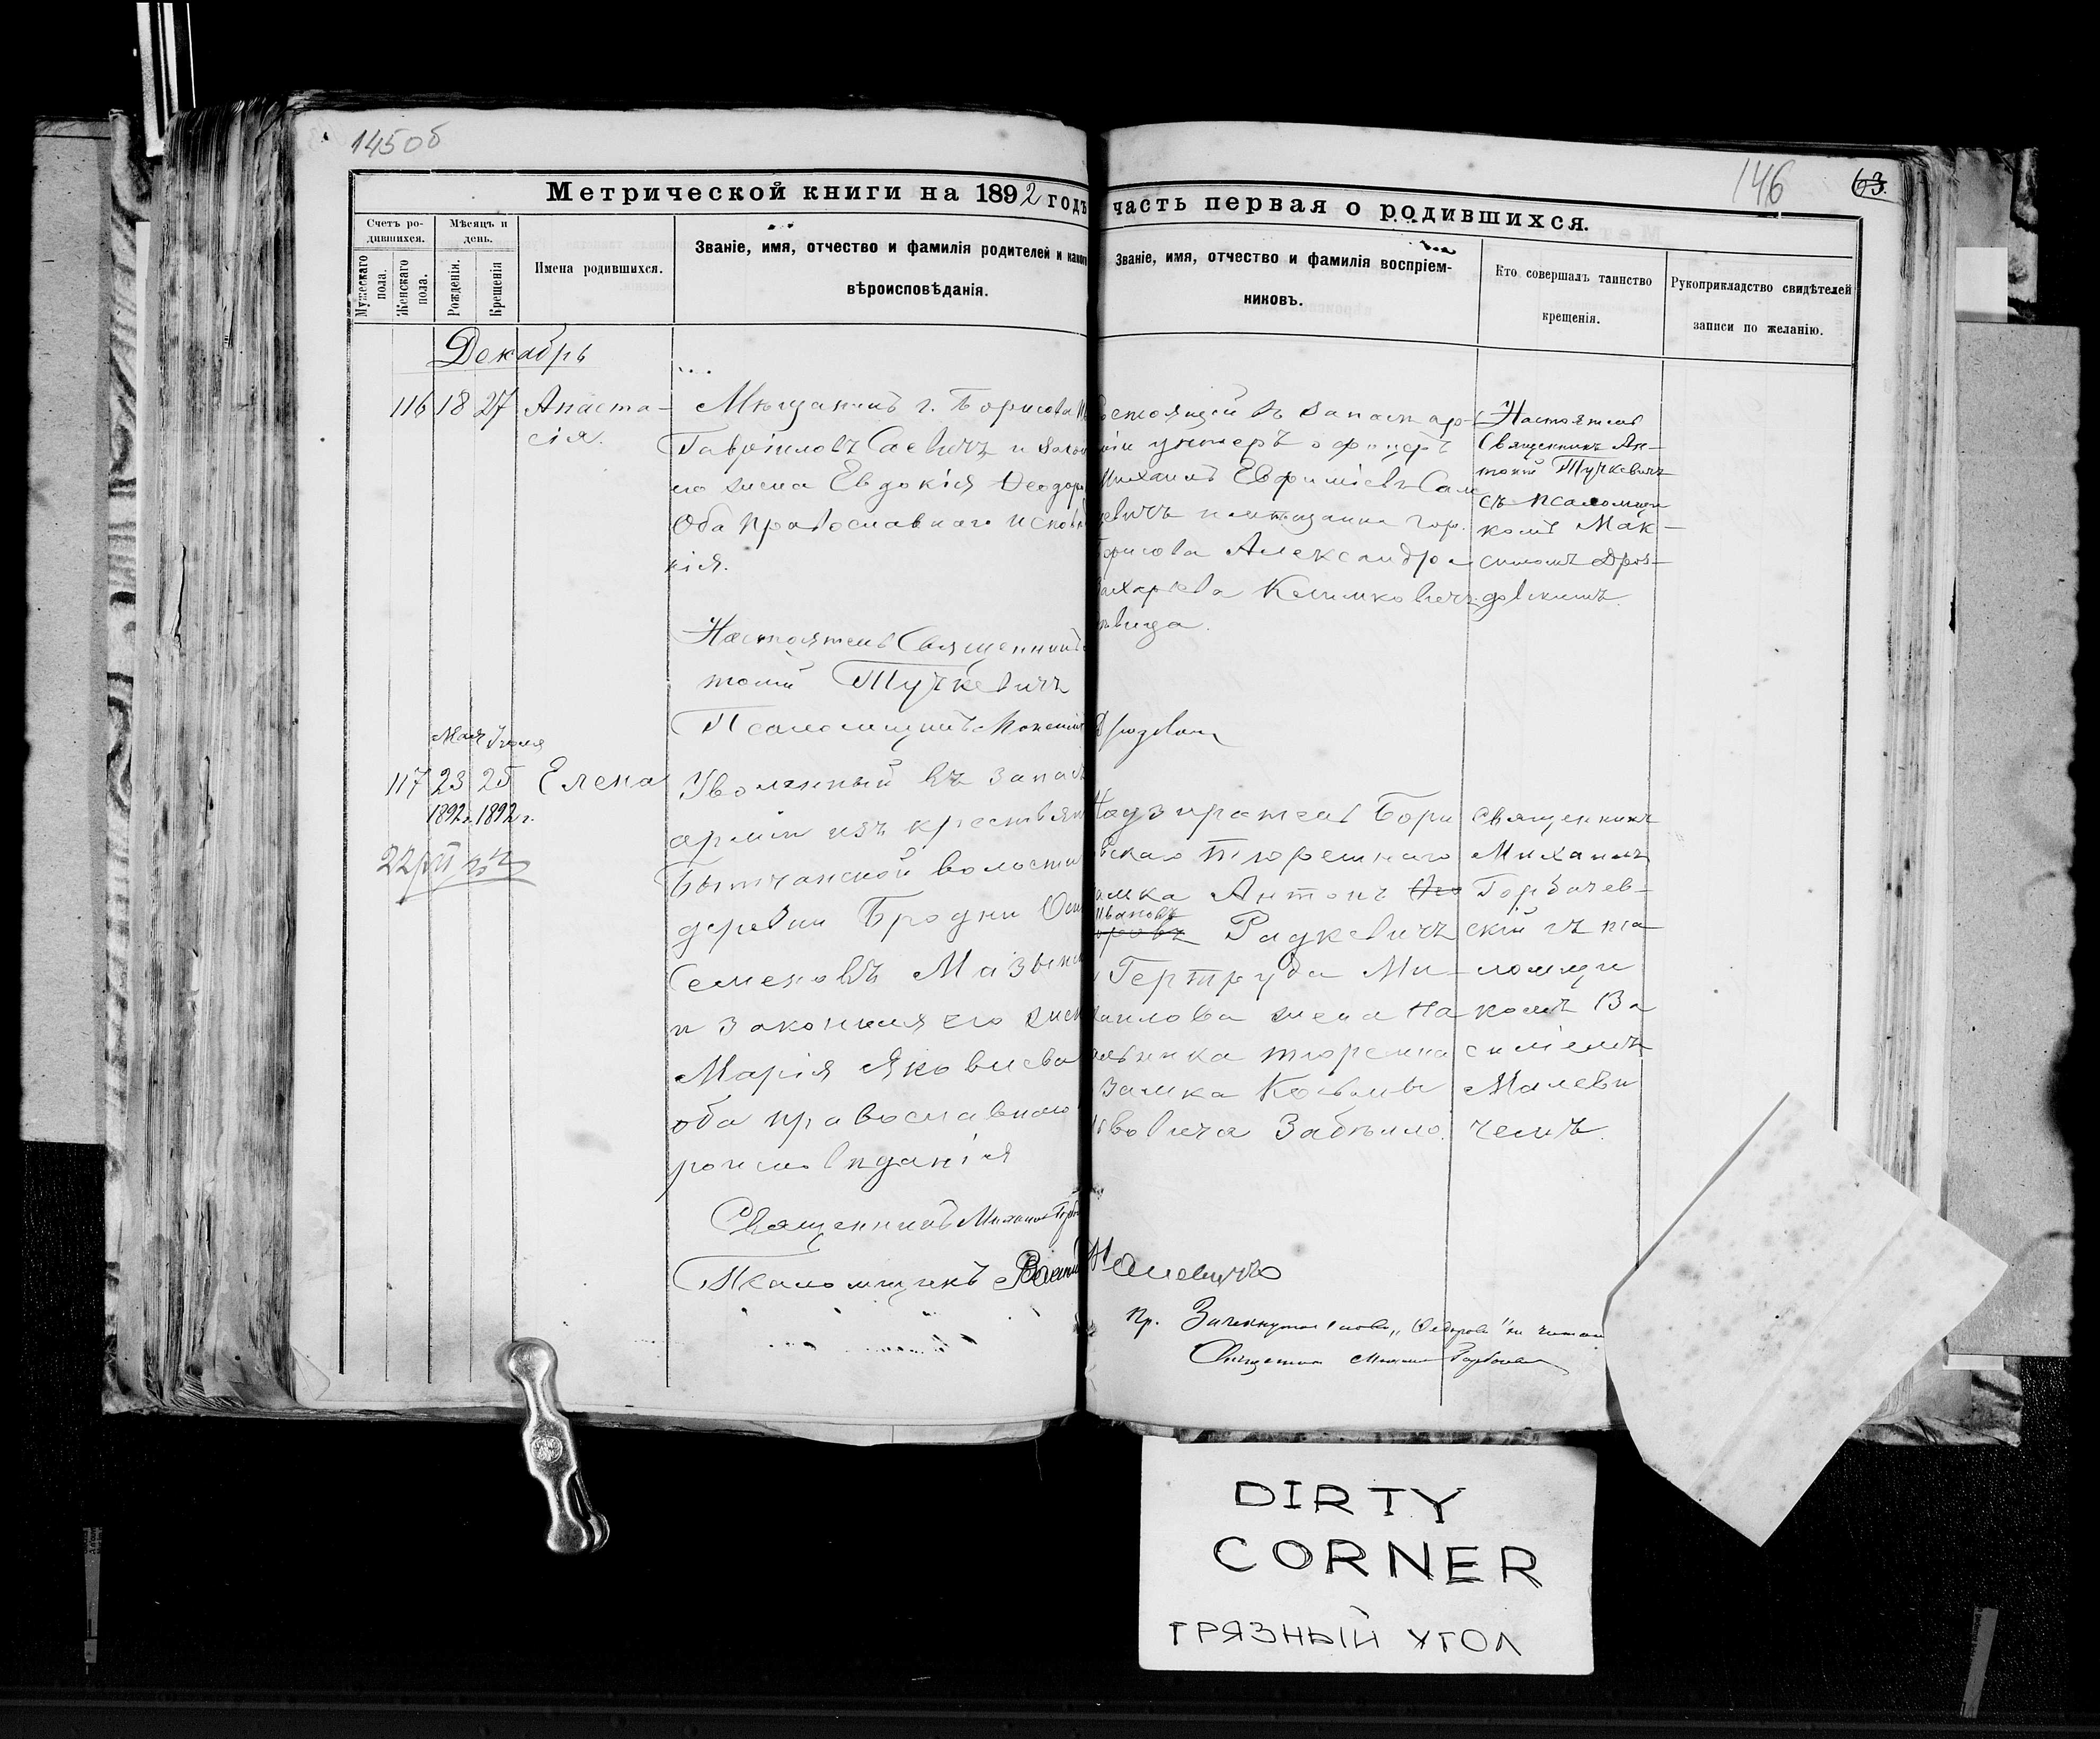 145об
146
63.
Метрической книги на 1892 годъ
часть первая о родившихся.
Счетъ ро-
дившихся.
Мужескаго
пола.
Женскаго
пола.
Мѣсяцъ и
день.
Рожденія.
Крещенія
Имена родившихся.
Званіе, имя, отчество и фамилія родителей и какого
вѣроисповѣданія.
Званіе, имя, отчество и фамилія воспріем-
никовъ.
Кто совершалъ таинство
крещенія.
Рукоприкладство свидѣтелей
записи по желанію.
Декабрь
116 18 27 Анаста-
сія.
Мѣщанинъ г. Борисова
Гавріиловъ Саевичъ и закон
го жена Евдокія Ѳеодоро
Оба православнаго исповѣ
нія.
Настоятель Священникъ
тоній Тучкевичъ
Псаломщикъ Максим
Дроздовс
состоящій въ запасѣ ар-
міи унтеръ офицеръ
Михаилъ Евфиміевъ Сам
цевичъ и мѣщанка гор.
Борисова Александра
Захарьева Климковичъ
дѣвица.
Настоятель
Священникъ Ан-
тоній Тучкевичъ
съ псаломщи
комъ Мак-
симомъ Дроз-
довскимъ.
Мая Іюля
117 23 25 Елена
1892 г. 1892 г.
Уволенный въ запасъ
арміи изъ крестьян
Бытчанской волости
деревни Бродни
Семеновъ Мазын
и законная его жен
Марія Яковлева
оба православнаго
роисповѣданія
Священникъ Михаилъ Горб
Псаломщикъ Васил
Малевичъ
Надзиратель Бори
вскаго тюремнаго
амка Антонъ
Ивановъ
Радкевичъ
Гертруда Ми-
хаилова жена На
альника тюремна
замка Косьмы
Забѣлло.
Священникъ
Михаилъ
Горбачев-
скій съ пса-
ломщи
комъ Ва
силіемъ
Малеви
чемъ.
Пр. Зачеркнутое слово „Ѳедоровъ" не читать
Священникъ Михаилъ Горбачев
DIRTY
CORNER
ГРЯЗНЫЙ УГОЛ